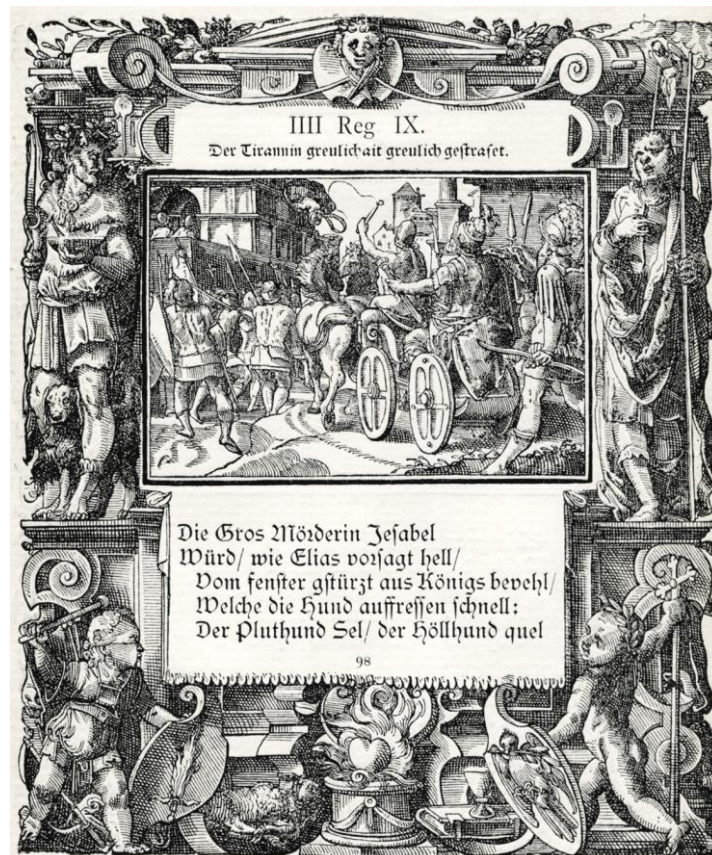 IIII Reg IX.
Der Tirannin greulichait greulich gestrafet.
Die Gros Mörderin Jesabel
Würd/ wie Elias vorsagt hell/
Vom fenster gstürzt aus Königs bevehl/
Welche die Hund auffressen schnell:
Der Pluthund Sel/ der Höllhund quel
98